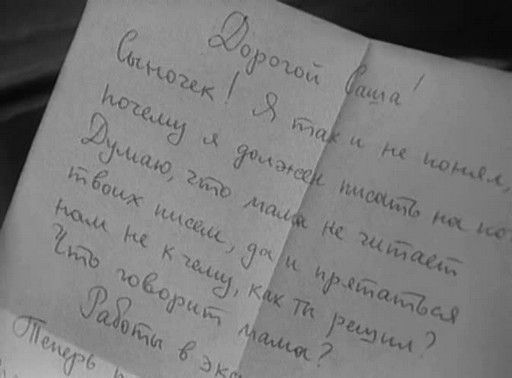 Дорогой Саша!
Сыночек! Я так и не понял,
почему я должен писать на
Думаю, что мама не читает
твоих писем, да и прятаться
нам не к чему, как ты решил?
Что говорит мама?
Работы в
Теперь